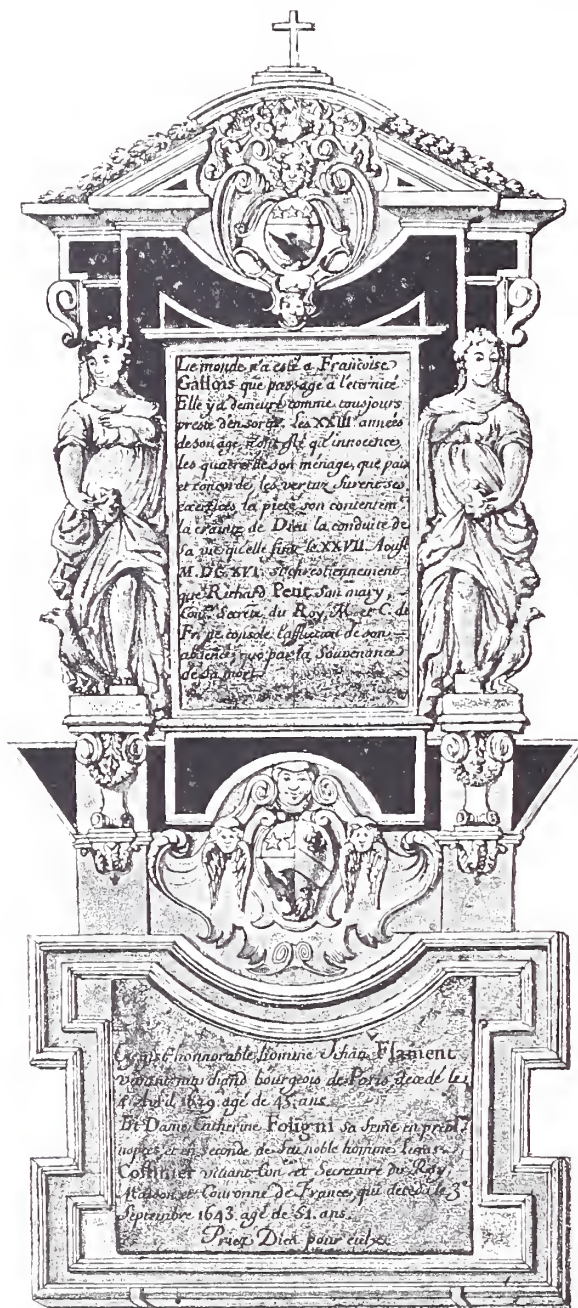 Le monde n'a esté a Francoise
Gallons que passage a l'eternité
Elle y a demeuré comme tousjours
preste d'en sortir. Les XXIII années
de son age n'ont esté qu'innocence
les quatre de son menage, que paix
et concorde, les vertuz furent ses
exercices la pieté son contentem.
la crainte de Dieu la conduite de
sa vie qu'elle finit le XXVII. Aoust
M. DC. XVI. si chrestiennement
que Richard Petit son mary,
Con.er Secret.e du Roy, M. et C. de
Fr. ne console l'affliction de son
absence, que par la Souvenance
de sa mort.
Cy gist honnorable homme Jehan Flament
vivant marchand bourgeois de Paris, decedé le
Avril 1629. agé de 45. ans.
Et Dame Catherine Foligni sa feme en prem.
nopces et en seconde de feu noble homme
vivant Con.er et Secretaire du Roy
Maison et Couronne de France, qui deceda le 3e
Septembre 1643. agé de 51. ans.
Priez Dieu pour eulx.